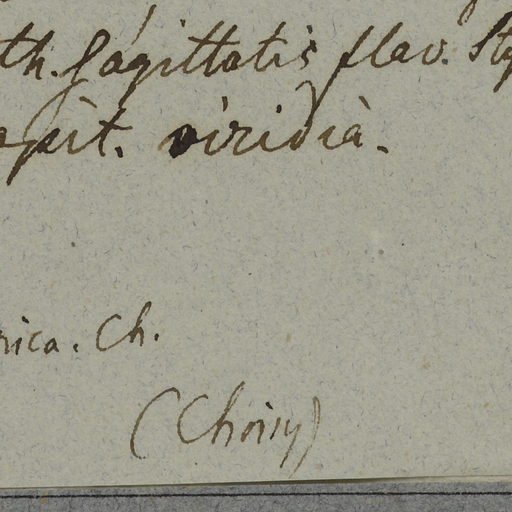 th. sagittatis flav. Sty
apit. viridia.
rica. Ch.
(Choisy)